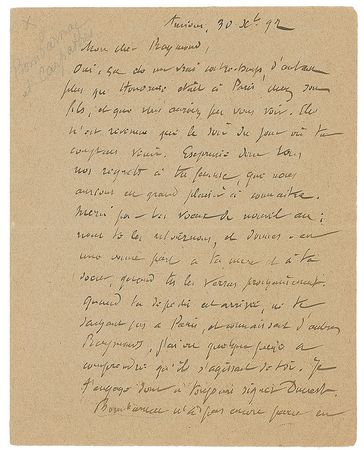 Bombarnac
et Carpathes
Amiens, 30 Xbre 92
Mon cher Raymond,
Oui, ça été un vrai contre-temps, d'autant
plus que Honorine était à Paris, chez son
fils, et que vous auriez pu vous voir. Elle
n'est revenue que le soir du jour où tu
comptais venir. Exprime donc tous
nos regrets à ta femme, que nous
aurions eu grand plaisir à connaître.
Merci pour tes voeux de nouvel an ;
nous te les retournons, et donnes-en
une bonne part à ta mère et à ta
soeur, quand tu les verras prochainement.
Quand ta dépêche est arrivée, ne te
sachant pas à Paris, et connaissant d'autres
Raymond, j'ai eu quelque peine à
comprendre qu'il s'agissait de toi. Je
t'engage donc à toujours signer Ducrest.
Bombarnac n'a pas encore paru en